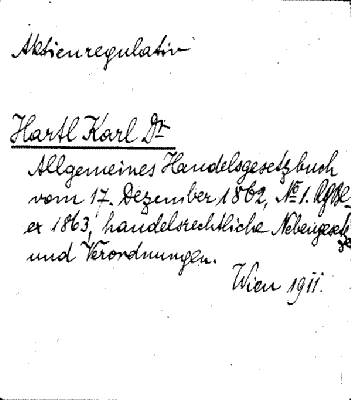 Aktienregulativ
Hartl Karl Dr
Allgemeines Handelsgesetzbuch
vom 17. Dezember 1862, No 1. RgBl
ex 1863, handelsrechtliche Nebengesetze
und Verordnungen.
Wien 1911.